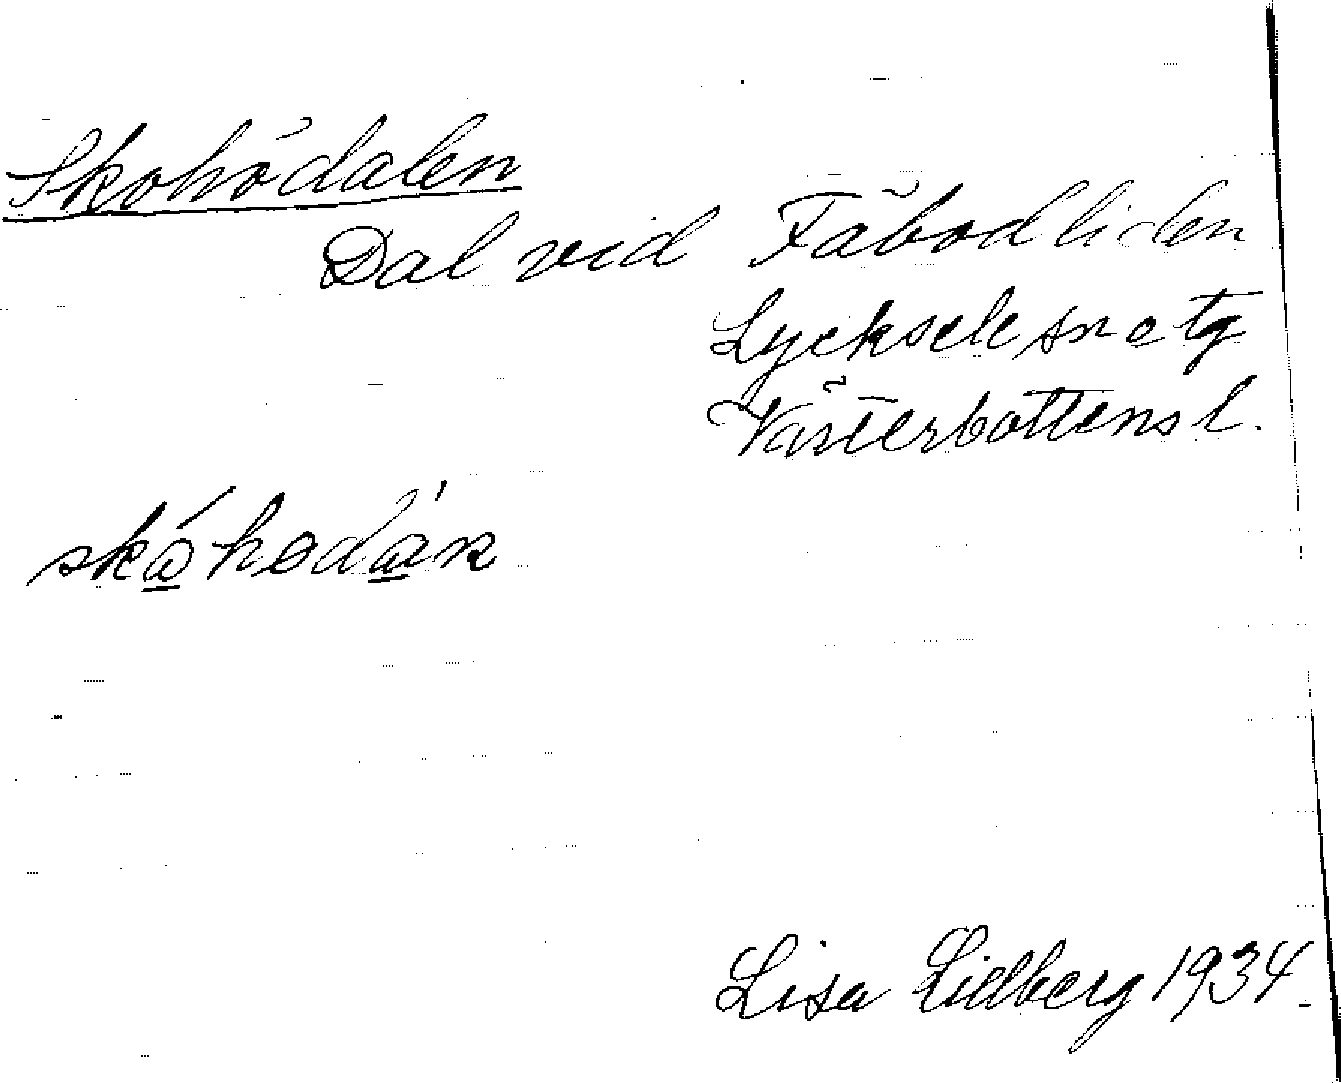 Skohödalen
Dal vid Fäbodliden
Lycksele sn o tg
Västerbottens l.
skóhodáṉ
Lisa Lidberg 1934